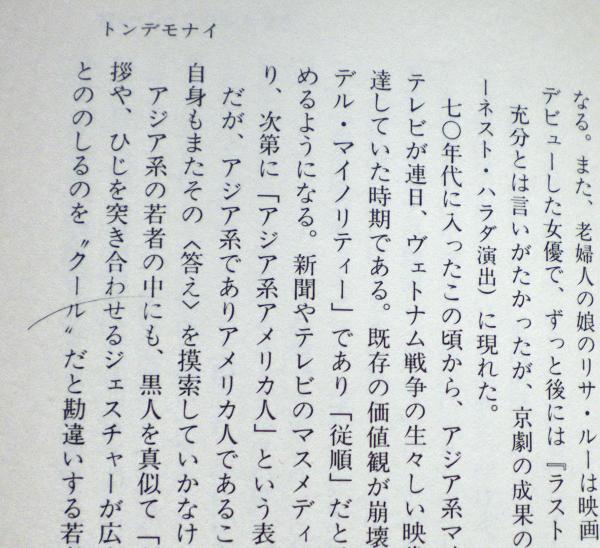 トンデモナイ
なる。また、老婦人の娘のリサ・ルーは映画
デビューした女優で、ずっと後には『ラスト
充分とは言いがたかったが、京劇の成果の
ーネスト・ハラダ演出）に現れた。
七〇年代に入ったこの頃から、アジア系マ
テレビが連日、ヴェトナム戦争の生々しい映
達していた時期である。既存の価値観が崩壊
デル・マイノリティー」であり「従順」だと
めるようになる。新聞やテレビのマスメディ
り、次第に「アジア系アメリカ人」という表
だが、アジア系でありアメリカ人であるこ
自身もまたその〈答え〉を摸索していかなけ
アジア系の若者の中にも、黒人を真似て「
拶や、ひじを突き合わせるジェスチャーが広
とののしるのを〝クール〟だと勘違いする若